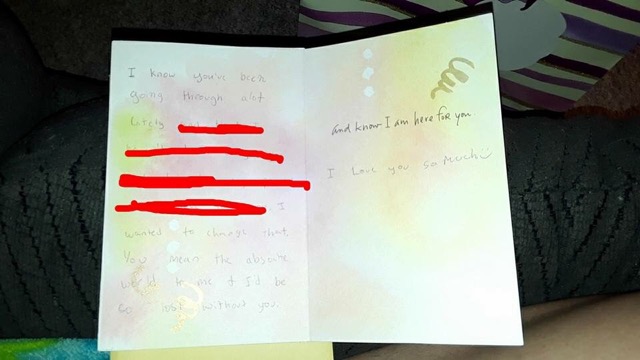 I know you've been
going through alot
lately
I
wanted to change that.
You mean the absolute
world to me & I'd be
so lost without you.
and know I am here for you
I love you so much